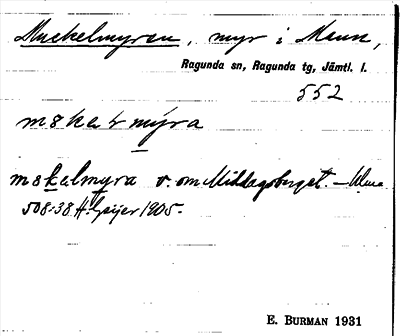 Muskelmyren, myr i Mann,
Ragunda sn, Ragunda tg, Jämtl. l.
552
məkəlmýra
məkəlmyra v. om Middagsberget. –
508:38 H. Geijer 1905.
E. BURMAN 1931